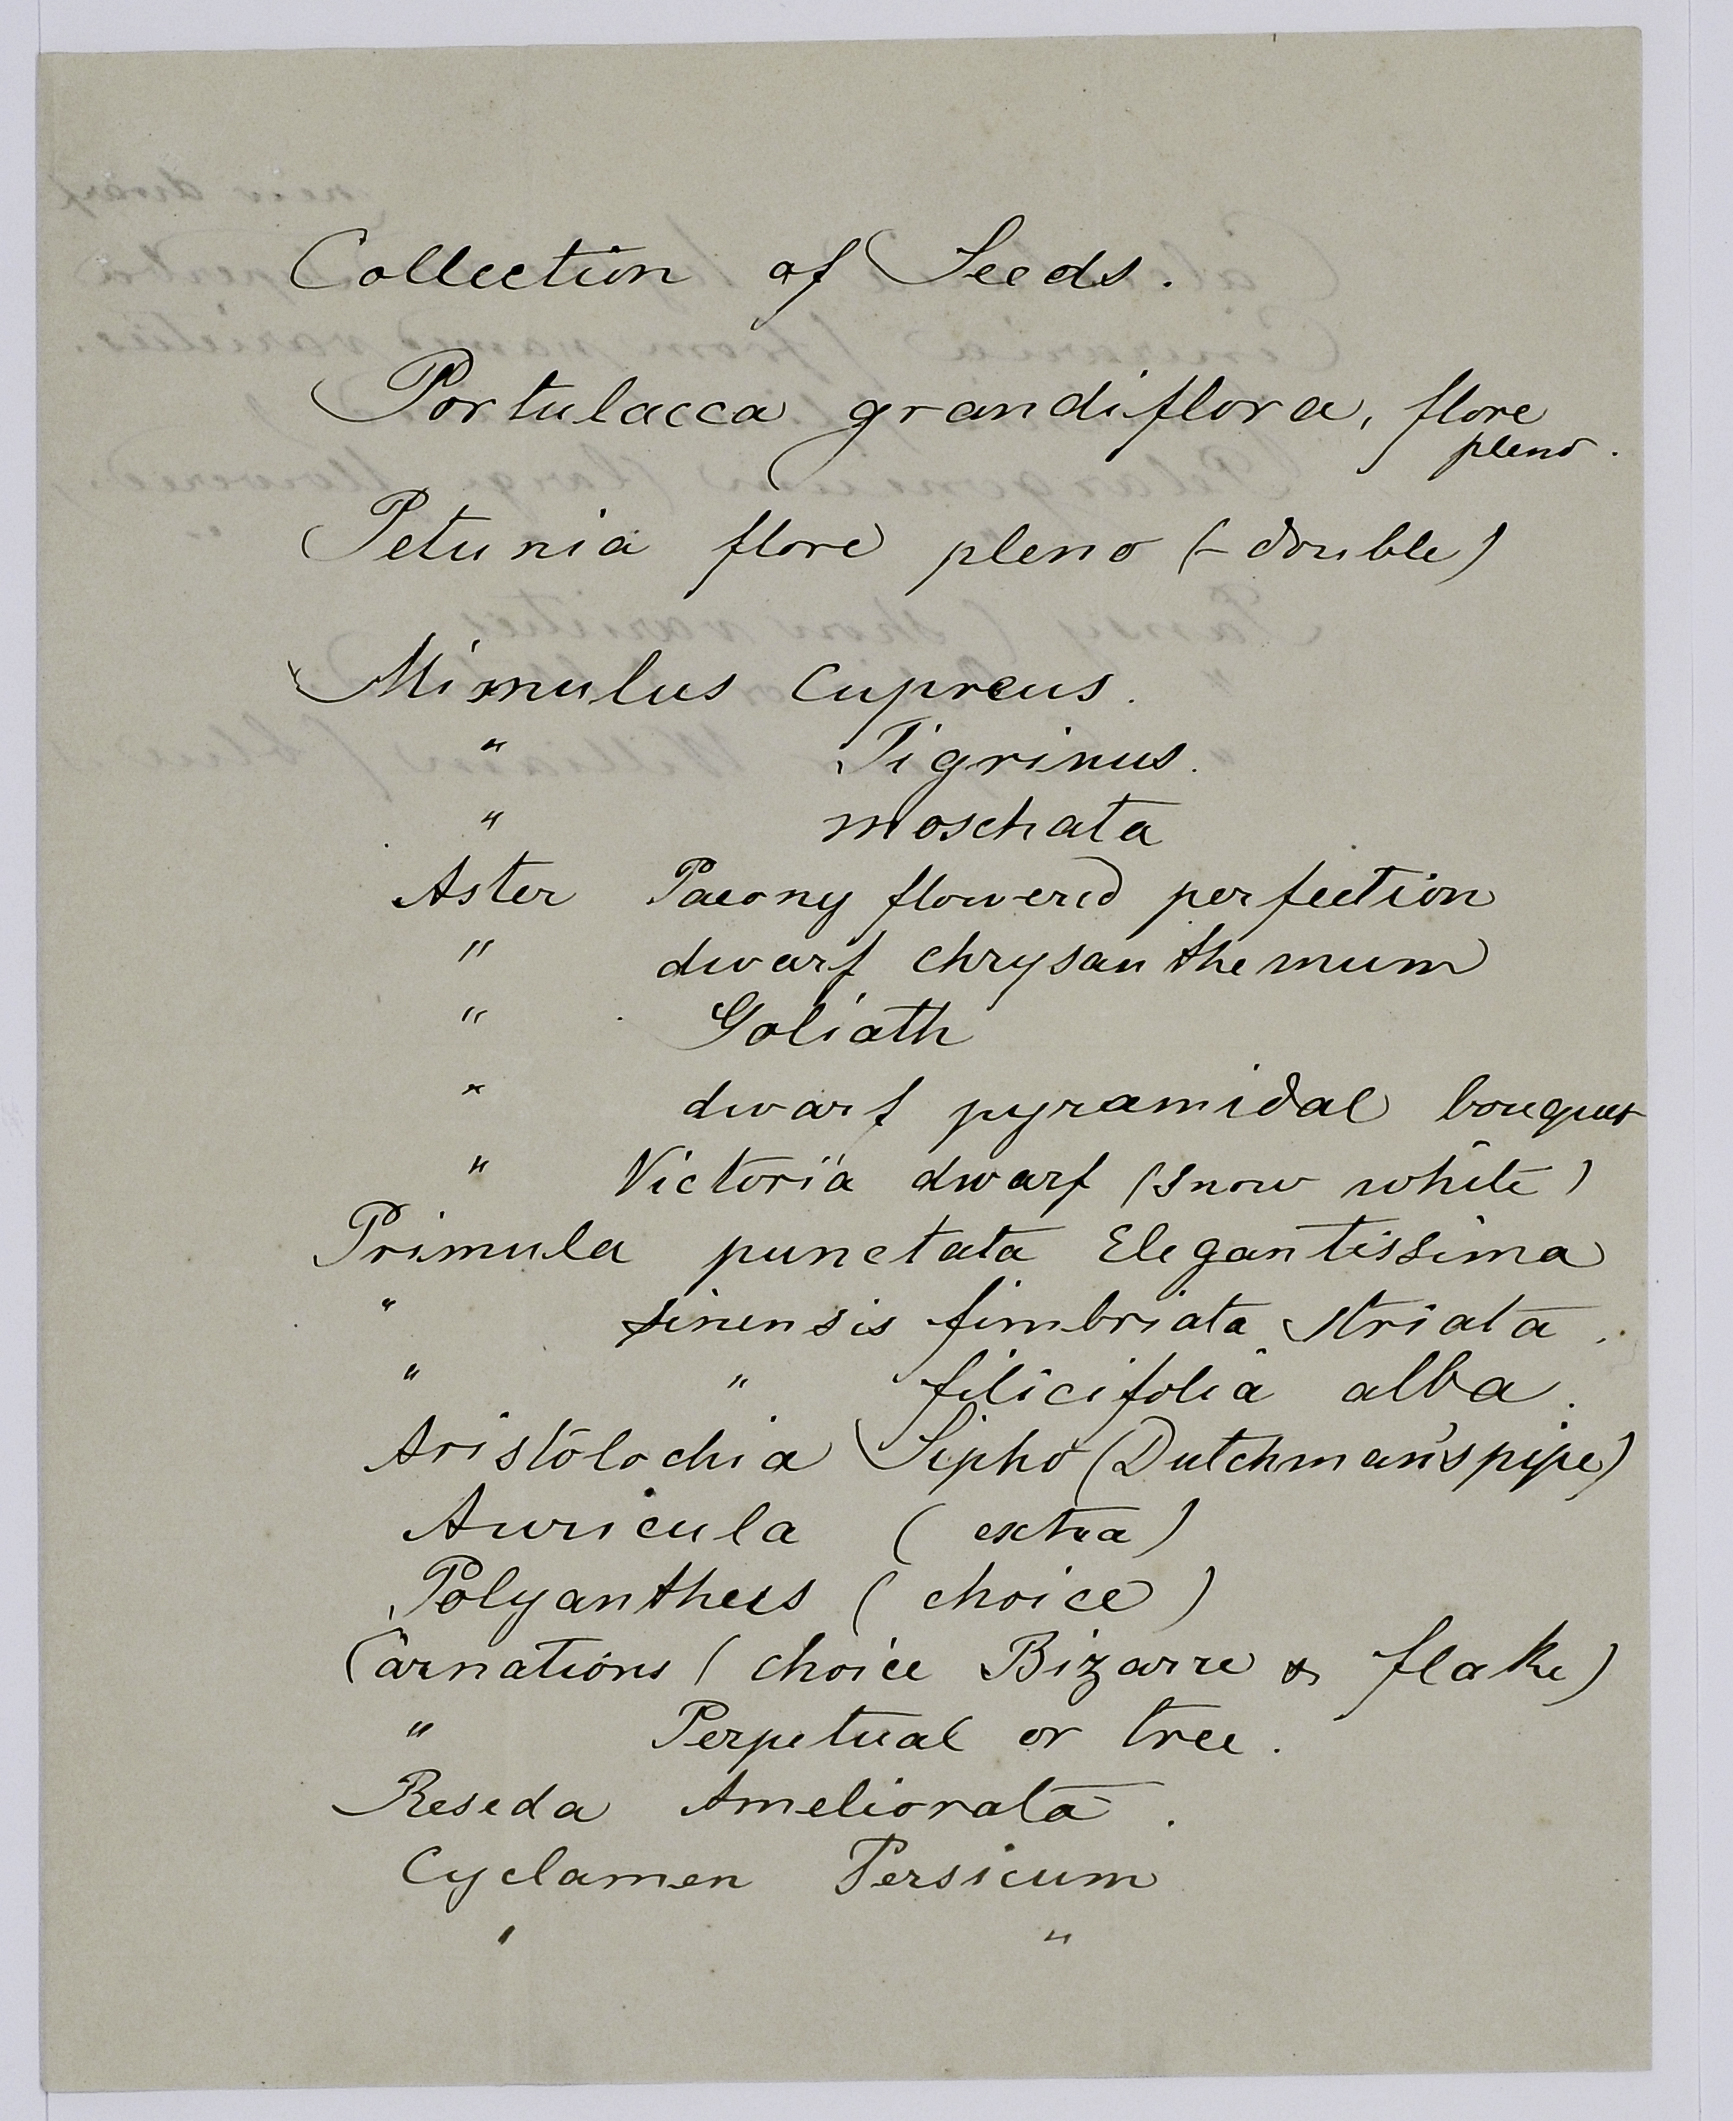 Collection of Seeds.
Portulacca grandiflora, flore
pleno.
Petunia flore pleno (-double)
Mimulus Cupreus.
" Tigrinus.
" moschata
Aster Paeony flowered perfection
" dwarf chrysanthemum
" Goliath
" dwarf pyramidal bouquet
" Victoria dwarf (snow white)
Primula punctata Elegantissima
" sinensis fimbriata striata.
" " filicifolia alba.
Aristolochia Sipho (Dutchman's pipe)
Auricula (extra)
Polyanthus (choice)
Carnations (choice Bizarre & flake)
" Perpetual or tree.
Reseda Ameliorata.
Cyclamen Persicum
" "